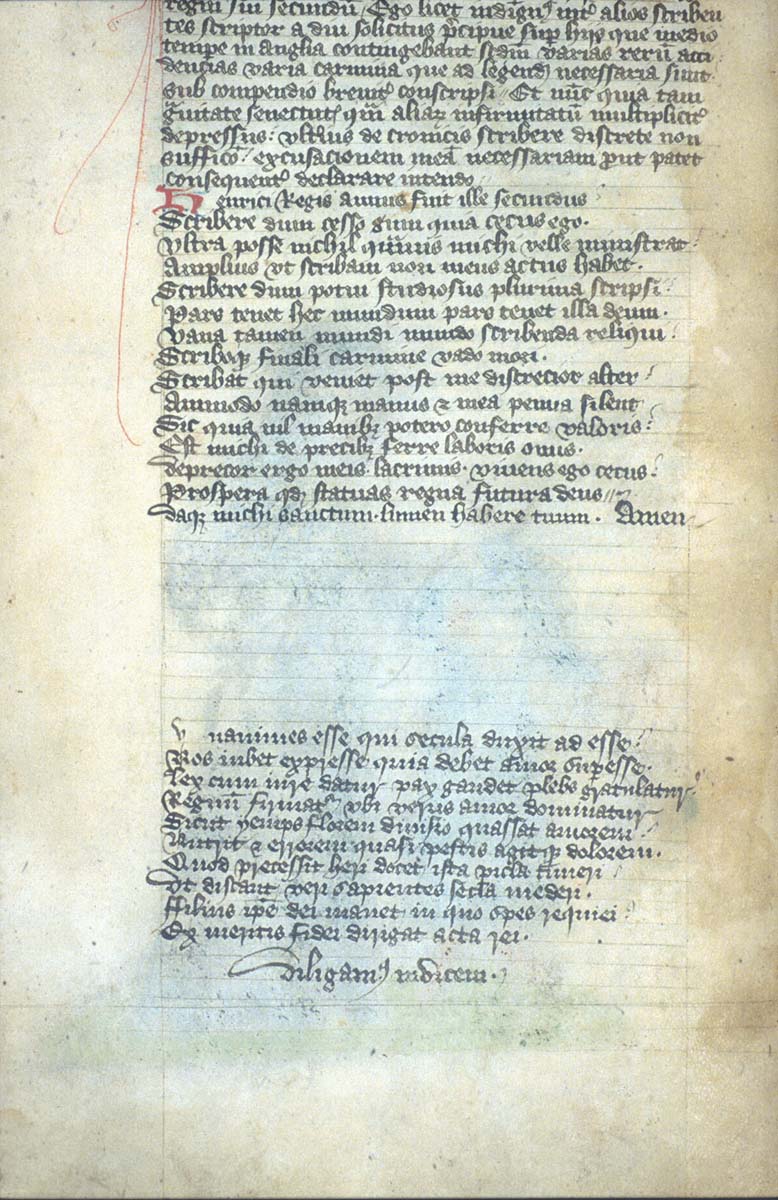 regni sui secundū / Ego licet indignꝰ int̉ alios scriben
tes scriptor a diu solicitus p̉cipue sup hijs que medio
tempe in anglia contingebant scdm̄ varias rerū acci
dencias varia carmina que ad legend necessaria sunt
sub compendio breuit̉ conscripsi // Et nūc quia tam
g̉uitate senectut̉ qm̄ aliaꝝ infirmitatū multiplicit̉
depressus : vlt̉ius de cronicis scribere discrete non
suffico : excusacionem meā necessariam put patet
consequent̉ declarare intendo
Henrici Regis annus fuit ille secundus
Scribere dum cesso sum quia cecus ego .
Vltra posse nichil qm̄uis michi velle ministrat :
Amplius vt scribam non meus actus habet .
Scribere dum potui studiosus plurima scripsi :
Pars tenet hec mundum pars tenet illa deum .
Vana tamen mundi mundo scribenda reliqui :
Scriboqꝫ finali carmine vado mori .
Scribat qui veniet post me discrecior alter :
Ammodo namqꝫ manus & mea penna silent
Sic quia nil manibꝫ potero conferre valoris :
Est michi de precibꝫ ferre laboris onus .
deprecor ergo meis . lacrimis . viuens ego cecus :
Prospera qd statuas regna futura deus //
daqꝫ michi sanctum . lumen habere tuum . Amen
vnanimes esse qui secula duxit ad esse :
Nos iubet expresse quia debet amor supesse .
Lex cum iure datur pax gaudet plebs gratulatur
Regnūm firmat̉ vbi verus amor dominatur
Sicut yemps florem diuisio quassat amorem :
Nutrit & errorem quasi pestis agitqꝫ dolorem .
Quod precessit heri docet ista picla timeri :
Vt discant veri sapientes secla mederi .
ffilius ipē dei manet in quo spes requiei :
Ex meritis fidei dirigat acta rei .
diligamꝰ inuicem .